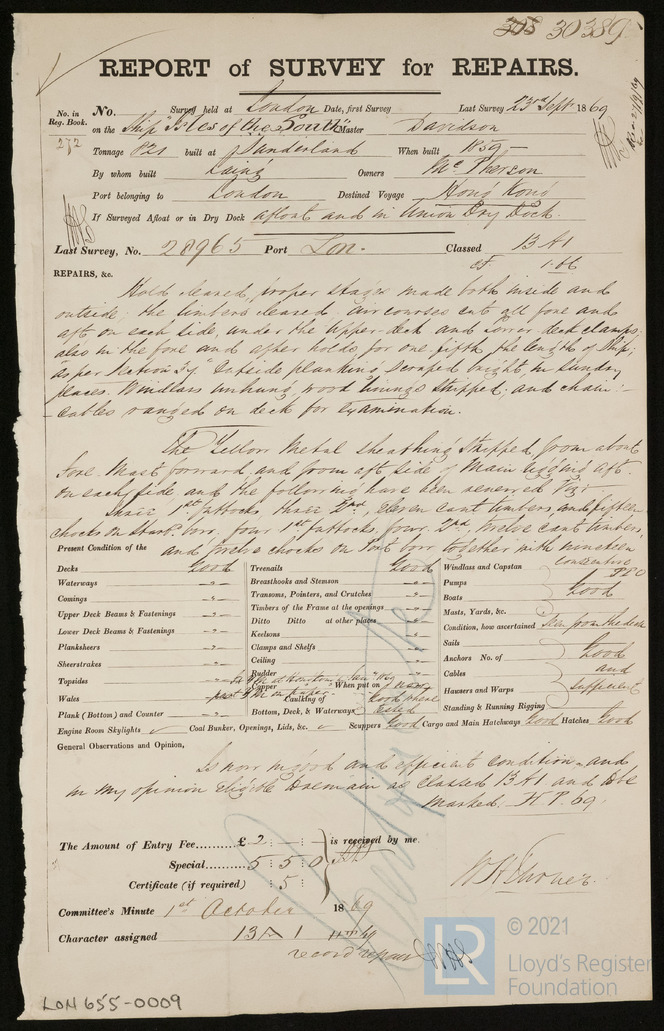 30389
REPORT of SURVEY for REPAIRS.
No. in Reg. Book. No. Survey held at London Date, first Survey Last Survey 23rd Sept 1869
272 on the Ship "Isles of the South" Master Davidson
Tonnage built at Sunderland When built 1859
By whom built Laing Owners McPherson
Port belonging to London Destined Voyage Hong Kong
If Surveyed Afloat or in Dry Dock afloat and in Union Dry Dock.
Last Survey, No. 28965 Port Lon. Classed 13 A1
REPAIRS, &c.
Hold cleared, proper stages made both inside and
outside; the limbers cleared. air courses cut all fore and
aft on each side, under the upper deck and lower deck clamps;
also in the fore and after holds for one fifth the length of Ship;
as per Section 54 Outside planking scraped bright in sundry
places. Windlass unhung, wood linings stripped, and chain
cables ranged on deck for examination.
The Yellow Metal sheathing stripped from about
fore Mast forward and from aft side of Main rigging aft
on each side, and the following have been renewed Viz:
three 1st futtocks, three 2nd, eleven cant timbers, and fifteen
chocks on Starb. bow, four 1st futtocks, four 2nd, twelve cant timbers,
and twelve chocks on Port bow together with nineteen
Present Condition of the
Decks Good
Waterways -"-
Comings -"-
Upper Deck Beams & Fastenings -"-
Lower Deck Beams & Fastenings -"-
Planksheers -"-
Sheerstrakes -"-
Topsides -"-
Wales
Plank (Bottom) and Counter -"-
Treenails Good
Breasthooks and Stemson -"-
Transoms, Pointers, and Crutches -"-
Timbers of the Frame at the openings -"-
Ditto Ditto at other places -"-
Keelsons -"-
Clamps and Shelfs -"-
Ceiling -"-
Rudder
Copper When put on
Caulking of Good where
Bottom, Deck, & Waterways tested
Windlass and Capstan
Pumps
Boats Good
Masts, Yards, &c.
Condition, how ascertained Seen from the deck
Sails
Anchors No. of Good
Cables and
Hausers and Warps Sufficient
Standing & Running Rigging
Engine Room Skylights Coal Bunker, Openings, Lids, &c. Scuppers Good Cargo and Main Hatchways Good Hatches Good
General Observations and Opinion,
Is now in good and efficient condition and
in my opinion eligible to remain as classed 13 A1 and to be
marked. H.P. 69.
The Amount of Entry Fee £ 2 : – : – is received by me.
Special 5 : 5 : 0
Certificate (if required) : 5 :
Committee's Minute 1st October 1869
Character assigned 13 A 1
record repairs
LON 655-0009
LR
© 2021
Lloyd's Register
Foundation